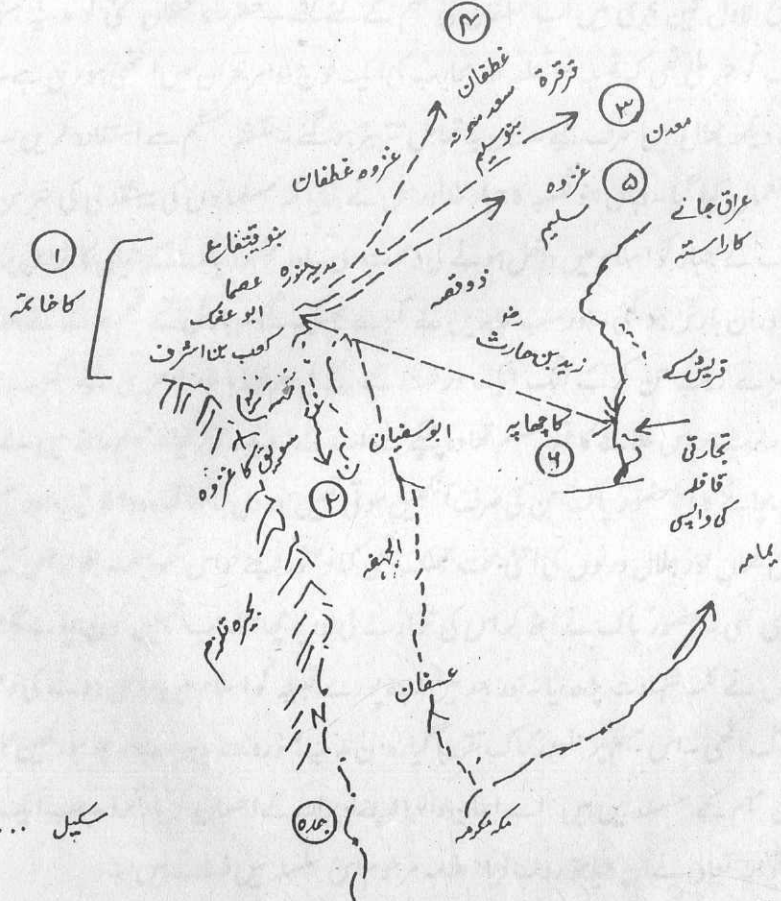 ۴
غطفان
قرقرة
سعد معونہ
بنو سلیم
۳
معدن
غزوہ غطفان
غزوہ
سلیم
۵
عراق جانے
کا راستہ
۱
کا خاتمہ
بنو قنقاع
مدینہ منورہ عصما
ابو عفک
کعب بن اشرف
ذوقصہ
زید بن حارث رض
کا چھاپہ
۶
قریش کے
تجارتی
قافلہ
کی واپسی
سویق کا غزوہ
۲
ابوسفیان
الجحفہ
یمامہ
بحیرہ قلزم
عسفان
جدہ
مکہ مکرمہ
سکیل ...